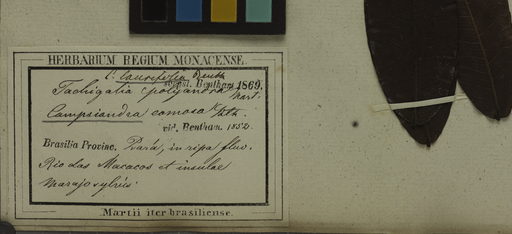 HERBARIUM REGIUM MONACENSE.
C. laurifolia Benth
secdt. Bentham 1869.
Tachigalia polyandra Mart.
Campsiandra comosa Bth.
vid. Bentham. 1852
Brasilia Provinc. Pará, in ripa fluv.
Rio das Macacos et insulae
Marajo sylvis.
Martii iter brasiliense.